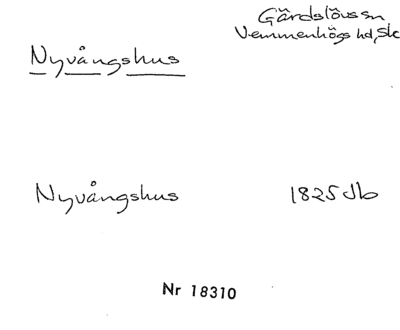 Gärdslövs sn
Vemmenhögs hd, Sk
Nyvångshus
Nyvångshus 1825 Jb
Nr 18310